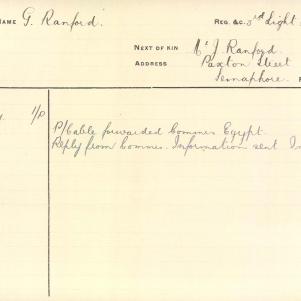 NAME G. Ranford. REG. &C. 3rd Light
NEXT OF KIN Mr J. Ranford.
ADDRESS Paxton Street
Semaphore.
1/P P/Cable forwarded Commes Egypt.
Reply from Commes. Information sent